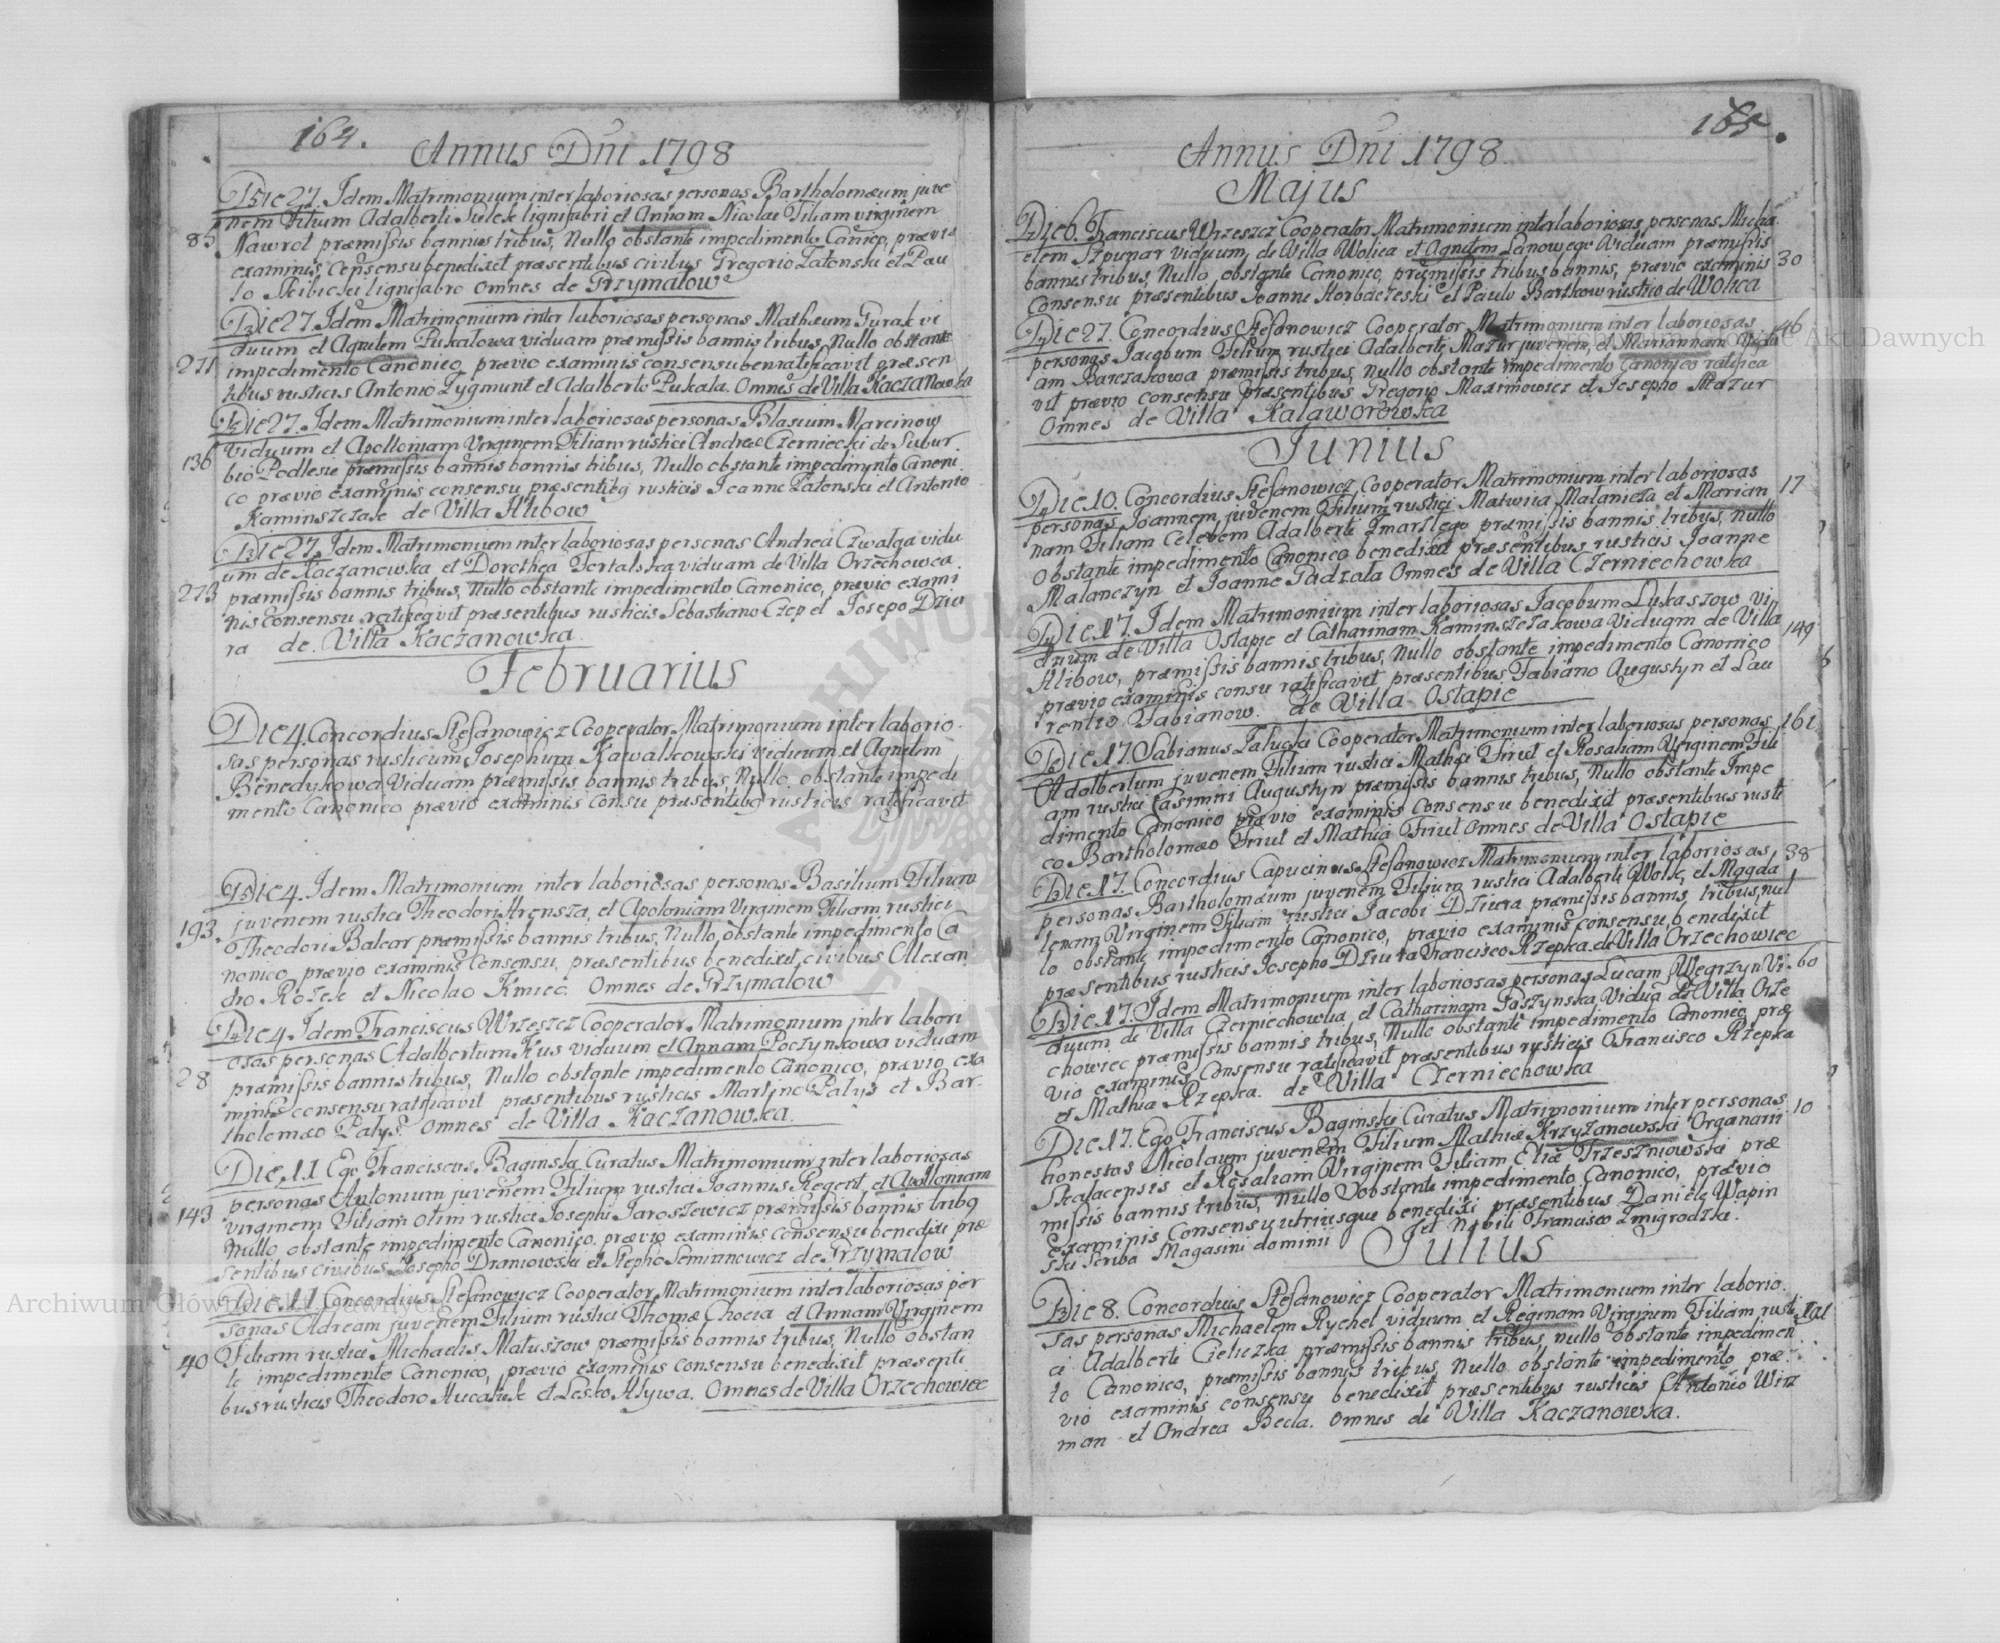 164.
Annus Dni 1798
Die 27. Idem Matrimonium inter laboriosas personas Bartholomæum juve
nem Filium Adalberti Sulek lignifabri et Annam Nicolai Filiam virginem
85 Nawrot præmissis bannis tribus, Nullo obstante impedimento Canico, prævio
examinis consensu benedixit præsentibus civibus Gregorio Latonski et Pau
lo Skibicki lignifabro omnes de Grzymałow
Die 27. Idem Matrimonium inter laboriosas personas Mathæum Gurak vi
duum et Agnetem Pukalowa viduam præmissis bannis tribus, Nullo obstante
271 impedimento Canonico, prævio examinis consensu ratificavit præsen
tibus rusticis Antonio Zygmunt et Adalberto Pukala. Omnes de Villa Kaczanowka
Die 27. Idem Matrimonium inter laboriosas personas Blasium Marcinow
viduum et Apolloniam Virginem Filiam rustici Andreæ Czerniecki de Subur
136 bio Podlesie præmissis bannis bannis tribus, Nullo obstante impedimento Canoni
co prævio examinis consensu præsentibq rusticis Joanne Latonski et Antonio
Kaminszczak de Villa Hlibow
Die 27. Idem Matrimonium inter laboriosas personas Andrea Czwalga vidu
um de Kaczanowka et Dorothea Fortalska viduam de Villa Orzechowca
273 præmissis bannis tribus, Nullo obstante impedimento Canonico, prævio exami
nis consensu ratificavit præsentibus rusticis Sebastiano Czop et Josepo Dziu
ra de. Villa Kaczanowka
Februarius
Die 4. Concordius Stefanowicz Cooperator Matrimonium inter laborio
sas personas rusticum Josephum Kawalkowski viduum et Agnetem
Benedykowa Viduam præmissis bannis tribus, Nullo obstante impedi
mento Canonico prævio examinis consu præsentibq rusticis ratificavit
Die 4. Idem Matrimonium inter laboriosas personas Basilium Filium
juvenem rustici Theodori Hrensza, et Apoloniam Virginem Filiam rustici
193. Theodori Balcar præmissis bannis tribus, Nullo, obstante impedimento Ca
nonico, prævio examinis Consensu, præsentibus benedixit civibus Alexan
dro Rozek et Nicolao Kmiec. Omnes de Grzymalow
Die 4. Idem Franciscus Wrzeszcz Cooperator Matrimonium inter labori
osas personas Adalbertum Kus viduum et Annam Poczynkowa viduam
28 præmissis bannis tribus, Nullo obstante impedimento Canonico, prævio exa
minis consensu ratificavit præsentibus rusticis Martino Palys et Bar-
tholomæo Palys. omnes de Villa Kaczanowka.
Die 11 Ego Franciscus Baginski Curatus Matrimonium inter laboriosas
personas Antonium juvenem Filium rustici Joannis Regent, et Apolloniam
143 virginem Filiam olim rustici Josephi Jaroszewicz præmissis bannis tribq
Nullo obstante impedimento Canonico, prævio examinis consensu benedixi præ
sentibus civibus Josepho Draniowski et Stepho Siminnowicz de Grzymalow
Die 11 Concordius Stefanowicz Cooperator Matrimonium inter laboriosas per
sonas Adream juvenem Filium rustici Thomæ Chocia et Annam Virginem
40 Filiam rustici Michaelis Matuszow præmissis bannis tribus, Nullo obstan
te impedimento Canonico, prævio examinis consensu benedixit præsenti
bus rusticis Theodoro Hucaluk et Lesko Hlywa. Omnes de Villa Orzechowiec
165.
Annus Dni 1798.
Majus
Die 6. Franciscus Wrzeszcz Cooperator Matrimonium inter laboriosas personas Micha
elem Szpunar viduum, de Villa Wolica et Agnetem Panowego Viduam præmissis
bannis tribus, Nullo obstante Canonico, præmissis tribus bannis, prævio examinis 30
Consensu præsentibus Joanne Horbaczeski et Paulo Bartkow rustico de Wolica
Die 27. Concordius Stefanowicz Cooperator Matrimonium inter laboriosas 46
personas Jacobum Filium rustici Adalberti Mazur juvenem, et Mariannam Vidu
am Barczakowa præmissis tribus, Nullo obstante impedimento Canonico ratifica
vit prævio consensu præsentibus Gregorio Maximowicz et Josepho Mazur
Omnes de Villa Kalaworowka
Junius
Die 10. Concordius Stefanowicz Cooperator Matrimonium inter laboriosas 17
personas Joannem juvenem Filium rustici Matwiia Malanicza et Marian
nam Filiam Celebem Adalberti Zmarzlego præmissis bannis tribus, Nullo
Obstante impedimento Canonico benedixit præsentibus rusticis Joanne
Malanczyn et Joanne Padzala Omnes de Villa Czerniechowka
Die 17. Idem Matrimonium inter laboriosas Jacobum Lukaszow vi
duum de Villa Ostapie et Catharinam Kaminszczakowa Viduam de Villa 149
Hlibow, præmissis bannis tribus, Nullo obstante impedimento Canonico
prævio examinis consu ratificavit præsentibus Fabiano Augustyn et Lau
rentio Fabianow. de Villa Ostapie
Die 17. Fabianus Zalucki Cooperator Matrimonium inter laboriosas personas 161
Adalbertum juvenem Filium rustici Mathæi Firut et Rosaliam Virginem Fili
am rustici Casimiri Augustyn præmissis bannis tribus, Nullo obstante Impe
dimento Canonico prævio examinis consensu benedixit præsentibus rusti
co Bartholomæo Firut et Mathia Firut Omnes de Villa Ostapie
Die 17. Concordius Capucinus Stefanowicz Matrimonium inter laboriosas 38
personas Bartholomæum juvenem Filium rustici Adalberti Wolk, et Magda
lenam Virginem Filiam rustici Jacobi Dziura præmissis bannis, tribus, nul
lo obstante impedimento Canonico, prævio examinis consensu, benedixit
præsentibus rusticis Josepho Dziura Francisco Rzepka de Villa Orzechowiec
Die 17. Idem Matrimonium inter laboriosas personas Lucam Wegrzyn Vi- 60
duum de Villa Czerniechowka et Catharinam Paszynska Vidua de Villa Orze
chowiec præmissis bannis tribus, Nullo obstante impedimento Canonico, præ
vio examinis Consensu ratificavit præsentibus rusticis Francisco Rzepka
et Mathia Rzepka. de Villa Czerniechowka
Die 17. Ego Franciscus Baginski Curatus Matrimonium inter personas 10
honestas Nicolaum juvenem Filium Mathiæ Krzyżanowski Organarii
Skalacensis et Rosaliam Virginem Filiam Eliæ Trzeszniowski præ
missis bannis tribus, Nullo obstante impedimento Canonico, prævio
Examinis Consensu utriusque benedixi præsentibus Daniele Wapin
ski Scriba Magasini dominii et Nobili Francisco Zmigrodzka.
Julius
Die 8. Concordius Stefanowicz Cooperator Matrimonium inter laborio.
sas personas Michaelem Rychel viduum et Reginam Virginum Filiam rusti
ci Adalberti Cieliczka præmissis bannis tribus, nullo obstante impedimen
to Canonico, præmissis bannis tribus, Nullo obstante impedimento præ-
vio examinis consensu benedixit præsentibus rusticis Antonio Wirz
man et Andrea Becla. omnes de Villa Kaczanowka.
ARCHIWUM
Archiwum Główne Akt Dawnych
Archiwum Główne Akt Dawnych